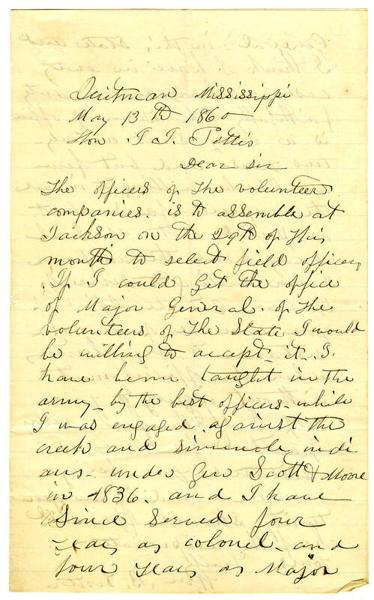 Quitman Mississippi
May 13th 1860
Hon J. J. Pettis
Dear sir
The officers of the volunteer
companies. is to assemble at
Jackson on the 29th of this
month to select field officers
. If I could get the office
of Major General. of the
volunteers of the State I would
be willing to accept it. I
have been taught in the
army by the best officers while
I was engaged against the
creek and siminole indi
ans under Gen Scott & Moore
in 1836. and I have
since served four
years as colonel. and
four years as Major